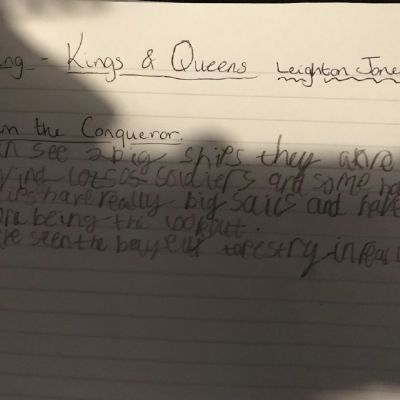 ng - Kings & Queens Leighton Jone
m the Conqueror.
n see 2 big ships they are
ying lots os soldiers and some ho
ips have really big sails and have
one being the lookout.
ve seen the baye